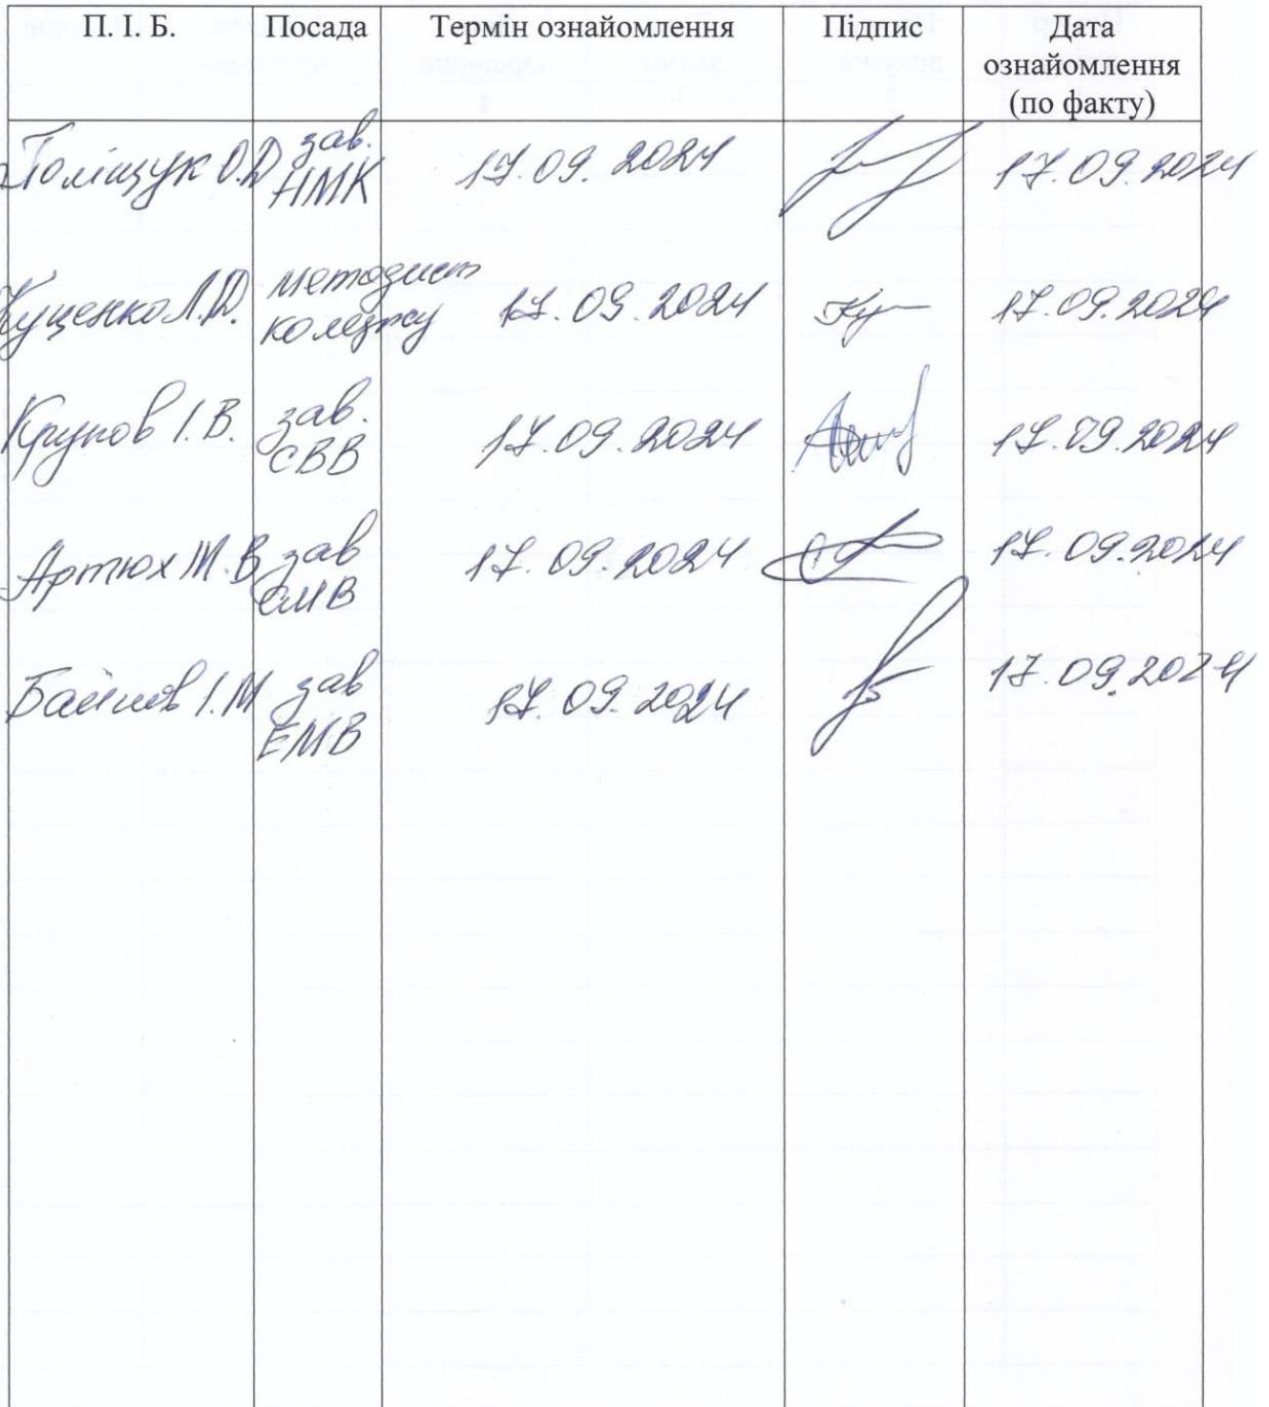 П. І. Б. Посада Термін ознайомлення Підпис Дата
ознайомлення
(по факту)
Поліщук О.Д зав.
НМК 17.09.2024 17.09.2024
Куценко Л.Д. методист
коледжу 17.09.2024 17.09.2024
Крупов І.В. зав.
СВВ 17.09.2024 17.09.2024
Артюх М.В зав
ЕМВ 17.09.2024 17.09.2024
І.М зав
ЕМВ 17.09.2024 17.09.2024